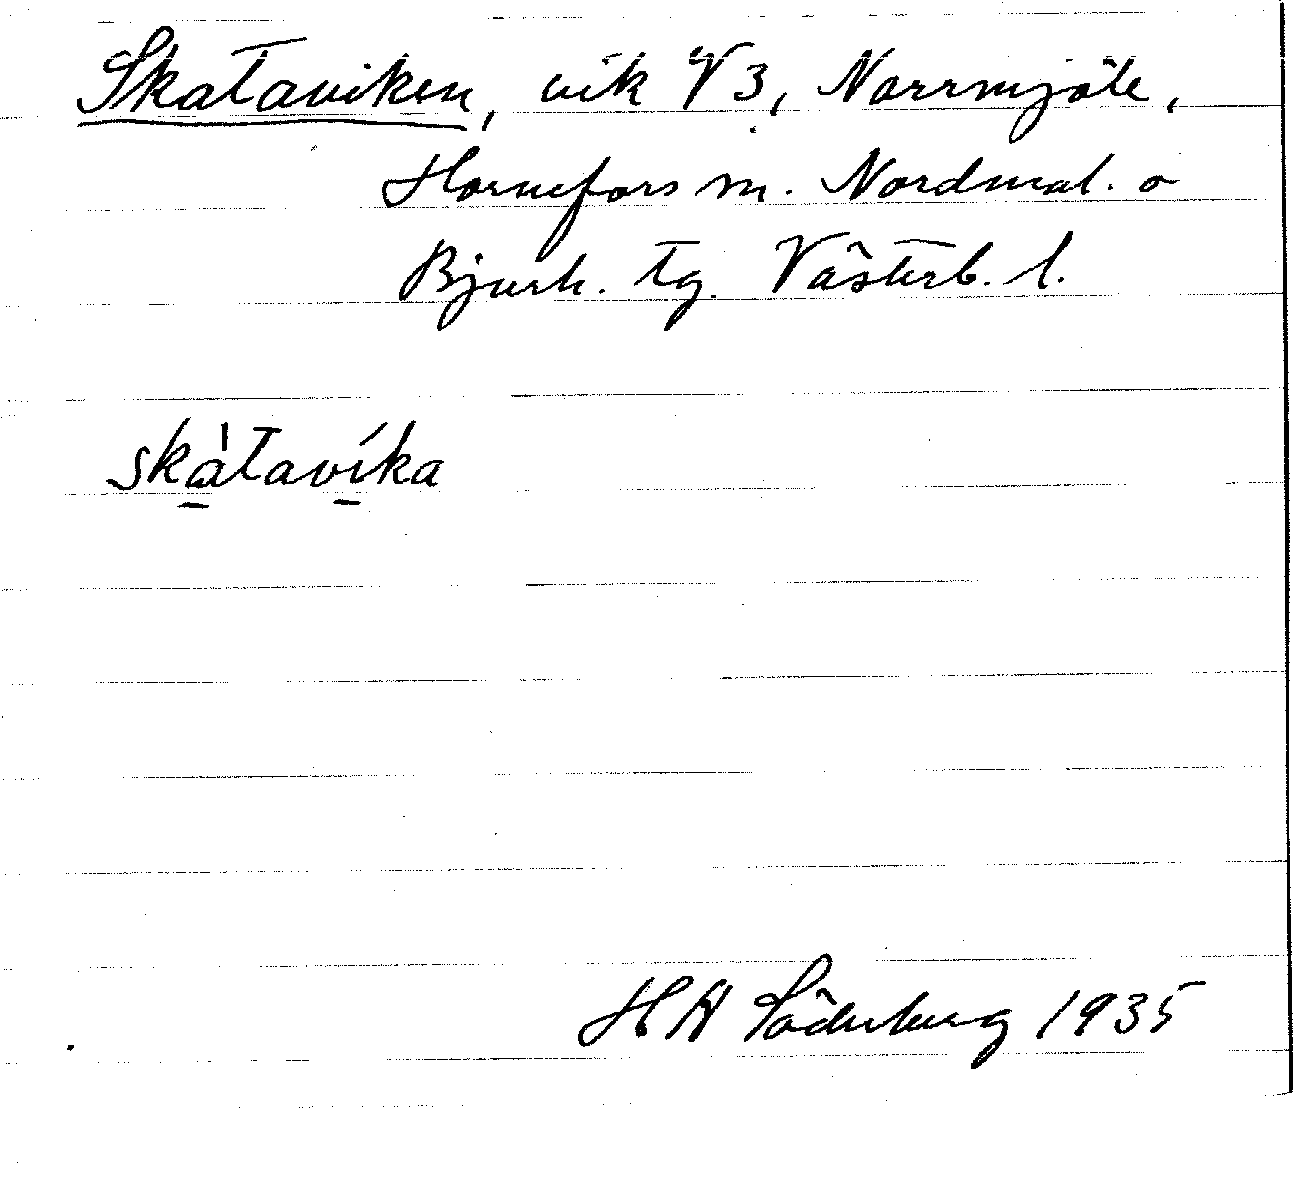 Skataviken, vik V3, Norrmjöle,
Hörnefors sn. Nordmal. o
Bjurh. tg. Västerb. l.
skà̱taví̱ka
H A Söderberg 1935